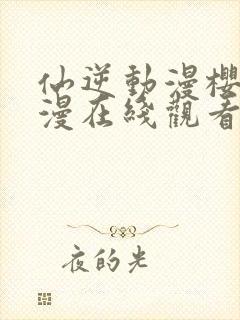 仙逆動漫櫻
漫在綫觀看
夜的光